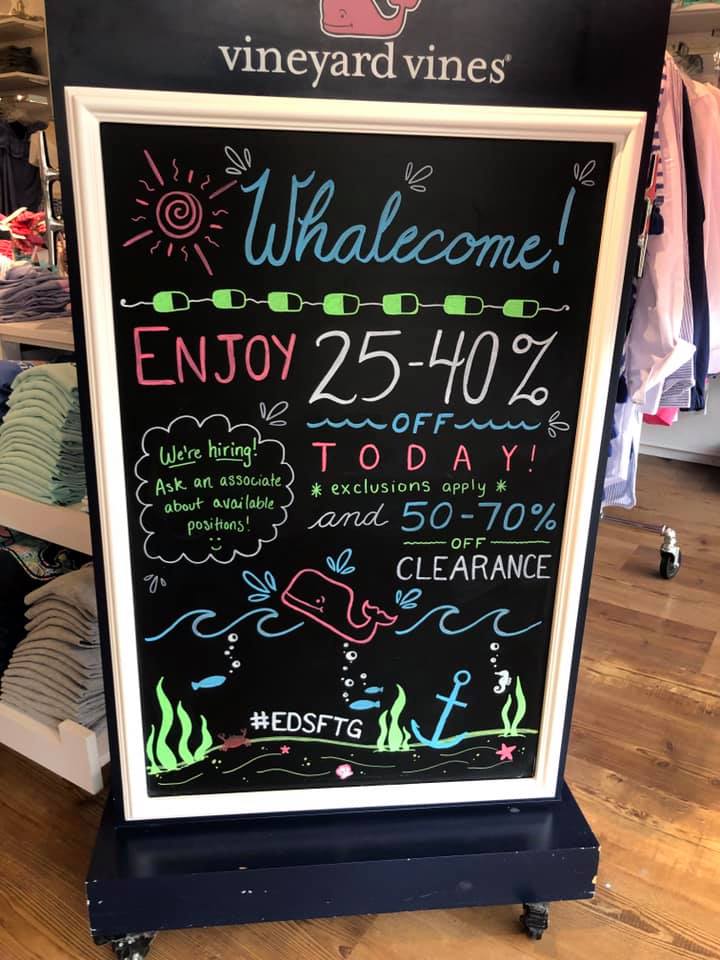 vineyard vines®
Whalecome!
ENJOY 25-40%
OFF
TODAY!
* exclusions apply *
and 50-70%
OFF
CLEARANCE
We're hiring!
Ask an associate
about available
positions!
#EDSFTG